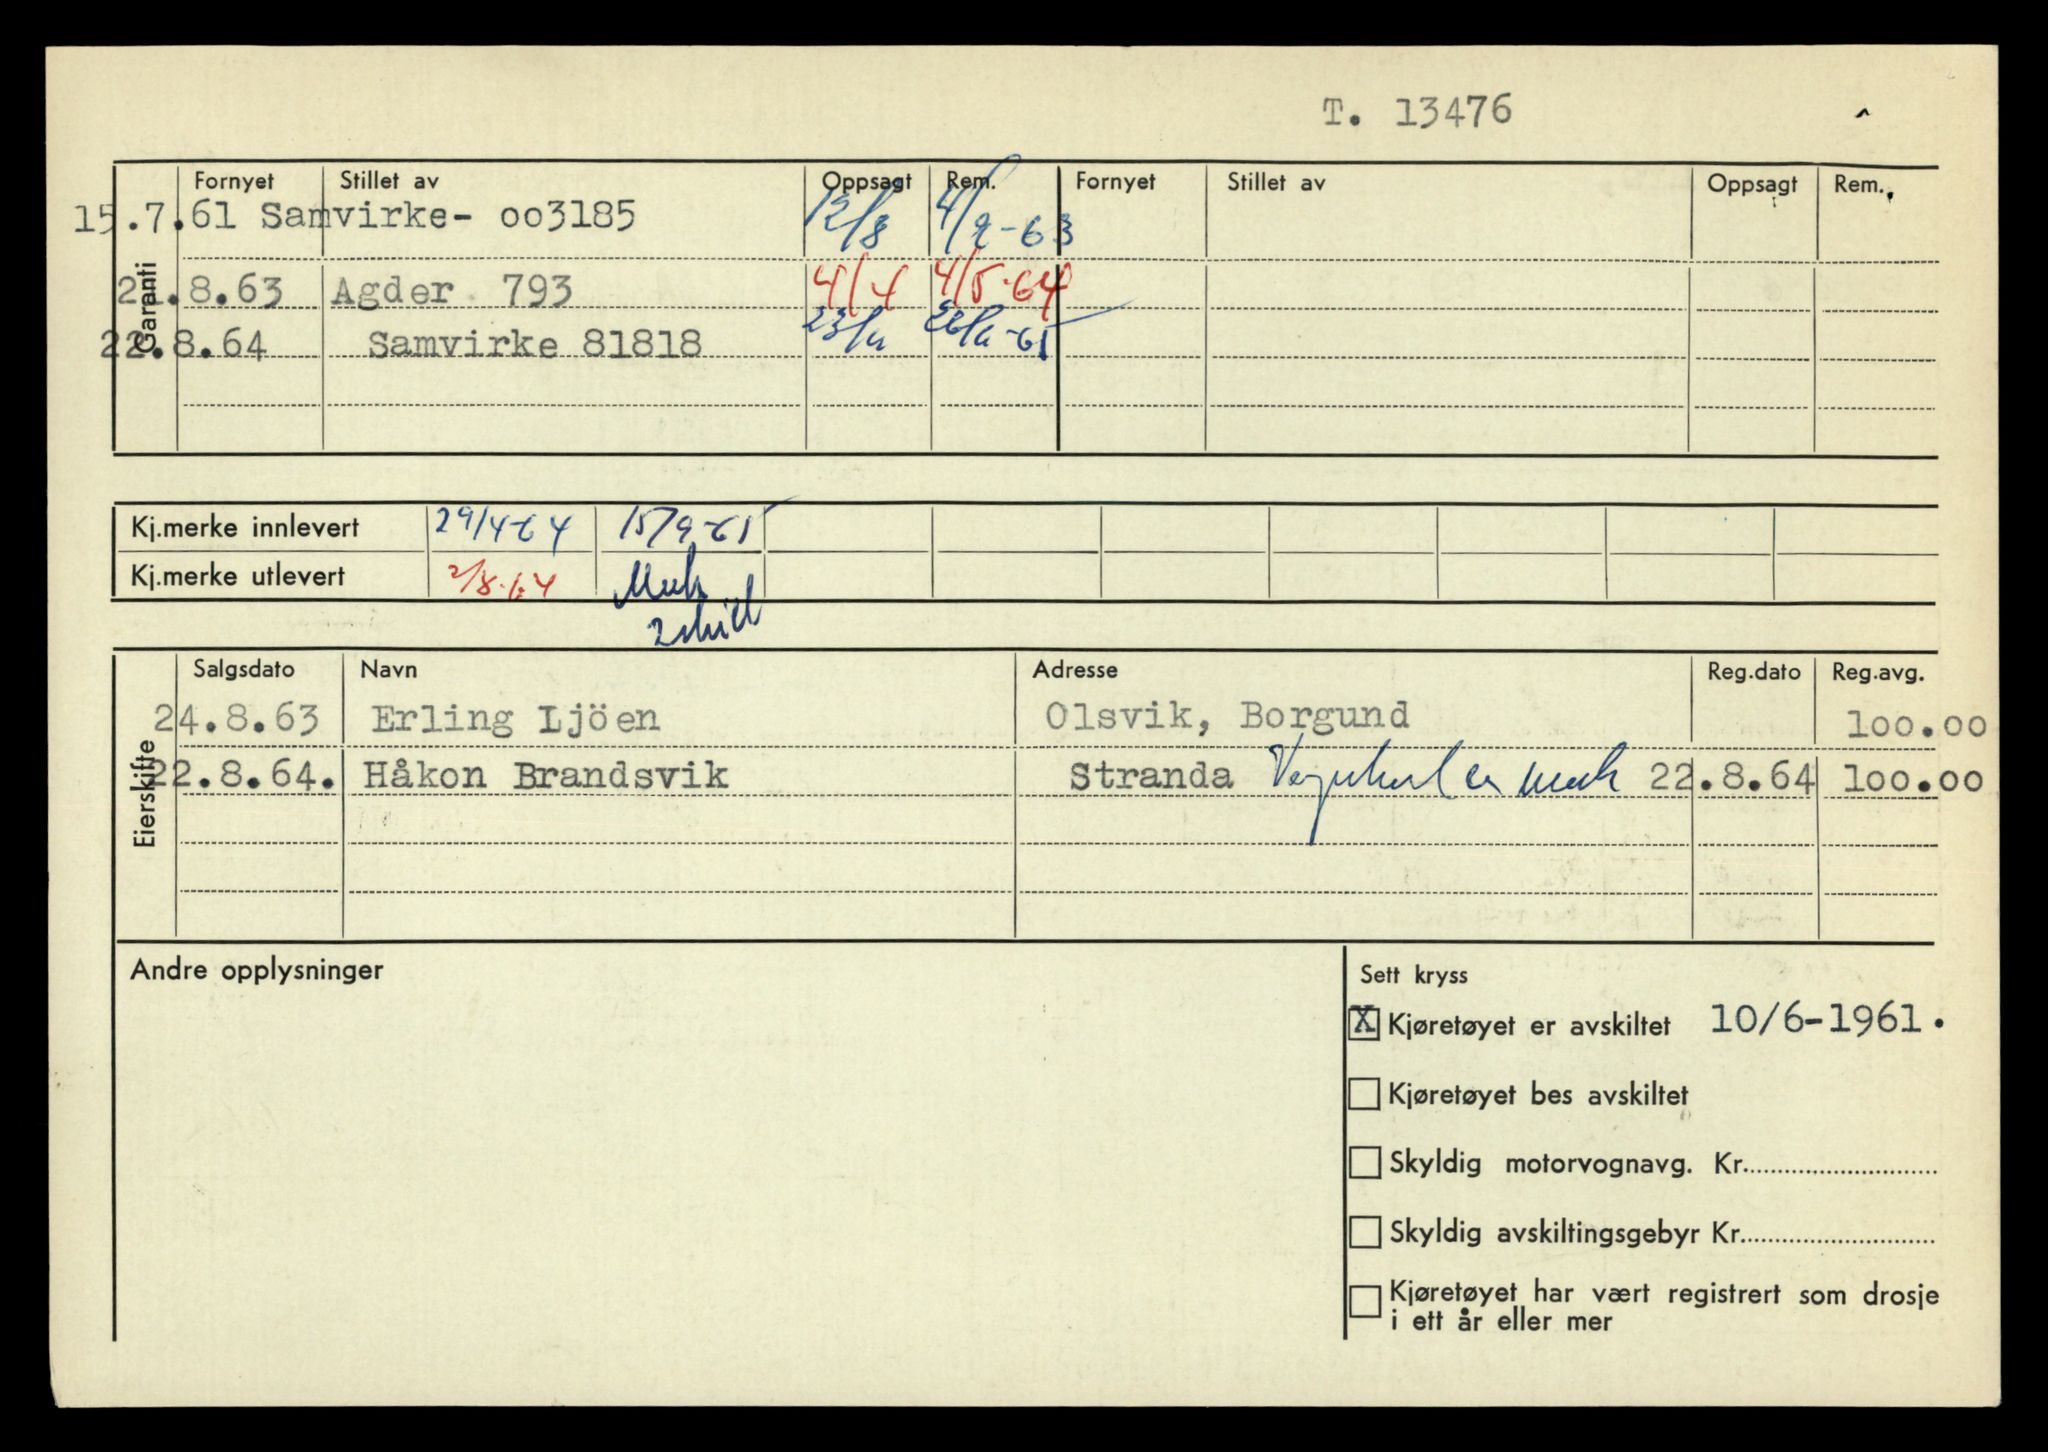 T. 13476
Fornyet Stillet av Oppsagt Rem. Fornyet Stillet av Oppsagt Rem.
15.7.61 Samvirke- oo3185 12/8 4/9-63
Garanti
21.8.63 Agder 793 4/4 4/5-64
22.8.64 Samvirke 81818
Kj.merke innlevert 29/4-64 15/9-65
Kj.merke utlevert 2/8-64
Salgsdato Navn Adresse Reg.dato Reg.avg.
Eierskifte
24.8.63 Erling Ljöen Olsvik, Borgund 100.00
22.8.64. Håkon Brandsvik Stranda 22.8.64 100.00
Andre opplysninger
Sett kryss
X Kjøretøyet er avskiltet 10/6-1961.
Kjøretøyet bes avskiltet
Skyldig motorvognavg. Kr.
Skyldig avskiltingsgebyr Kr.
Kjøretøyet har vært registrert som drosje
i ett år eller mer